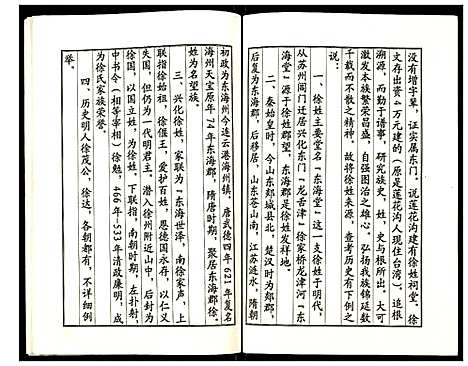 没有增字辈，证实属东门，说莲花沟建有徐姓祠堂，徐
文存出资4万元建的（原是莲花沟人现住台湾）。追根
溯源，而勤于谱事，研究族史，姓，史与根所出，大可
激发本族繁荣昌盛，自强图治之雄心。弘扬我族锦延数
千载而不散之精神，故将徐姓来源，查考历史有下倒之
说。
一、徐姓主要堂名「东海堂」这一支徐姓于明代，
从苏州阊门迁居兴化东门「龙舌津」徐家桥龙津河「东
海堂」源于徐姓郡望，东海郡是徐姓发祥地。
二、秦始皇时，今山东郯城县北，楚汉时为郯郡，
后复为东海郡，后移居，山东苍山南，江苏涟水，隋朝
初政为东海州今连云港海州镇，唐武德四年621年复名
海州天宝原年74年东海郡，隋居时期，聚居东海郡徐，
姓为名望族。
三、兴化徐姓，家联为「东海世泽，南徐家声，上
联指徐始祖，徐偃王，爱护百姓，恩德国永存，以仁义
失国，但仍为一代明君主，潜入徐州附近山中，后封为
徐，以国立姓，为徐姓，下联指，南朝时期，左扑射，
中书今（相等宰相）徐勉，466年-533年清政廉明，成
为徐氏家族荣誉。
四、历史明人徐茂公，徐达，各朝都有，不详细例
举。